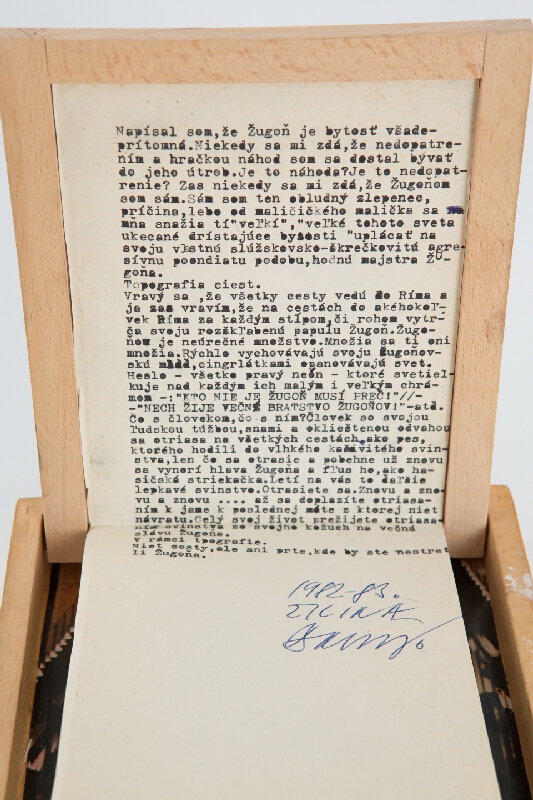 Napísal som,že Žugoň je bytosť všade-
prítomná.Niekedy sa mi zdá,že nedopatre-
ním a hračkou náhod som sa dostal bývať
do jeho útrob.Je to náhoda?Je to nedopat-
renie? Zas niekedy sa mi zdá,že Žugoňom
som sám.Sám som ten obludný zlepenec,
príčina,lebo od maličičkého malička sa
mňa snažia tí"veľkí","veľké tohoto sveta
ukecané drístajúce bytosti "uplácať na
svoju vlastnú slúžskovsko-škrečkovitú agre-
sívnu poondiatu podobu,hodnú majstra Žu-
goňa.
Topografia ciest.
Vravý sa ,že všetky cesty vedú do Ríma a
ja zas vravím,že na cestách do akéhokoľ-
vek Ríma za každým stĺpom,či rohom vytr-
ča svoju rozškľabenú papuľu Žugoň.Žugo-
ňom je neúrečné množstvo.Množia sa tí oni
množia.Rýchlo vychovávajú svoju žugoňov-
skú mlaď,cingrlátkami opanovávajú svet.
Heslo - všetko pravý neón - ktoré svetiel-
kuje nad každým ich malým i veľkým chrá-
mom -:"KTO NIE JE ŽUGOŇ MUSÍ PREČ!"//-
-"NECH ŽIJE VEČNÉ BRATSTVO ŽUGOŇOV!"-atď.
Čo s človekom,čo s ním?Človek so svojou
ľudskou túžbou,snami a oklieštenou odvahou
sa otriasa na všetkých cestách,ako pes,
ktorého hodili do vlhkého kašovitého svin-
stva,len čo sa otrasie a pobehne už znovu
sa vynorí hlava Žugoňa a fľus ho,ako ha-
sičská striekačka.Letí na vás to ďalšie
lepkavé svinstvo.Otrasiete sa.Znovu a zno-
vu a znovu .... až sa doplazíte otriasa-
ním k jame k poslednej méte z ktorej niet
návratu.Celý svoj život prežijete otriasa-
ním svinstva zo svojho kožuch na večnú
slávu Žugoňa.
V rámci tpografie.
Niet cesty,ale ani prte,kde by ste nestret
li Žugoňa.
1982-83.
ŽILINA